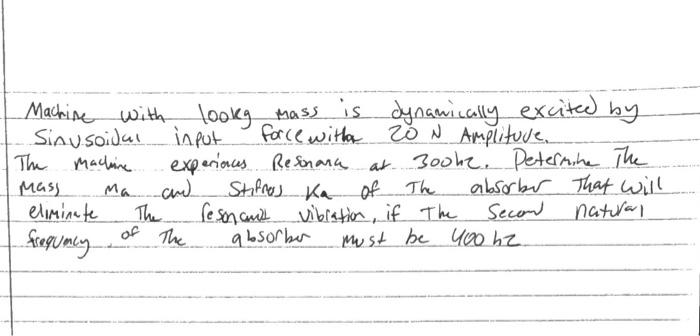 Machine with 100kg mass is dynamically excited by
Sinusoidal input force with a 20 N Amplitude.
The machine experiences Resonance at 300hz. Determine The
Mass Ma and Stifnes Ka of The absorber That will
eliminate The resonant vibration, if The Second natural
frequency of The absorber must be 400 hz